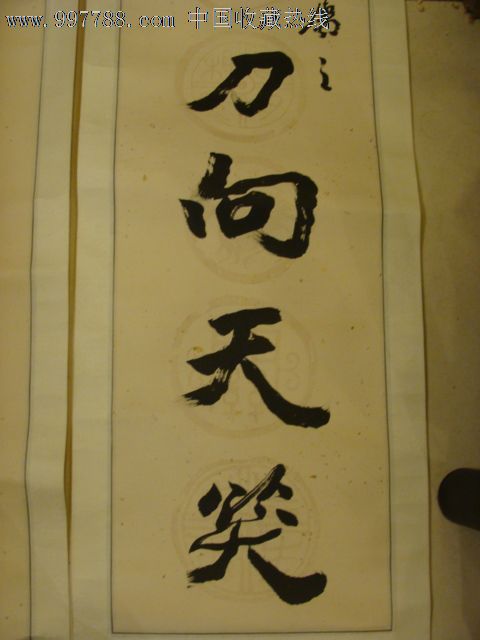 www.997788.com 中国收藏热线
刀向天笑